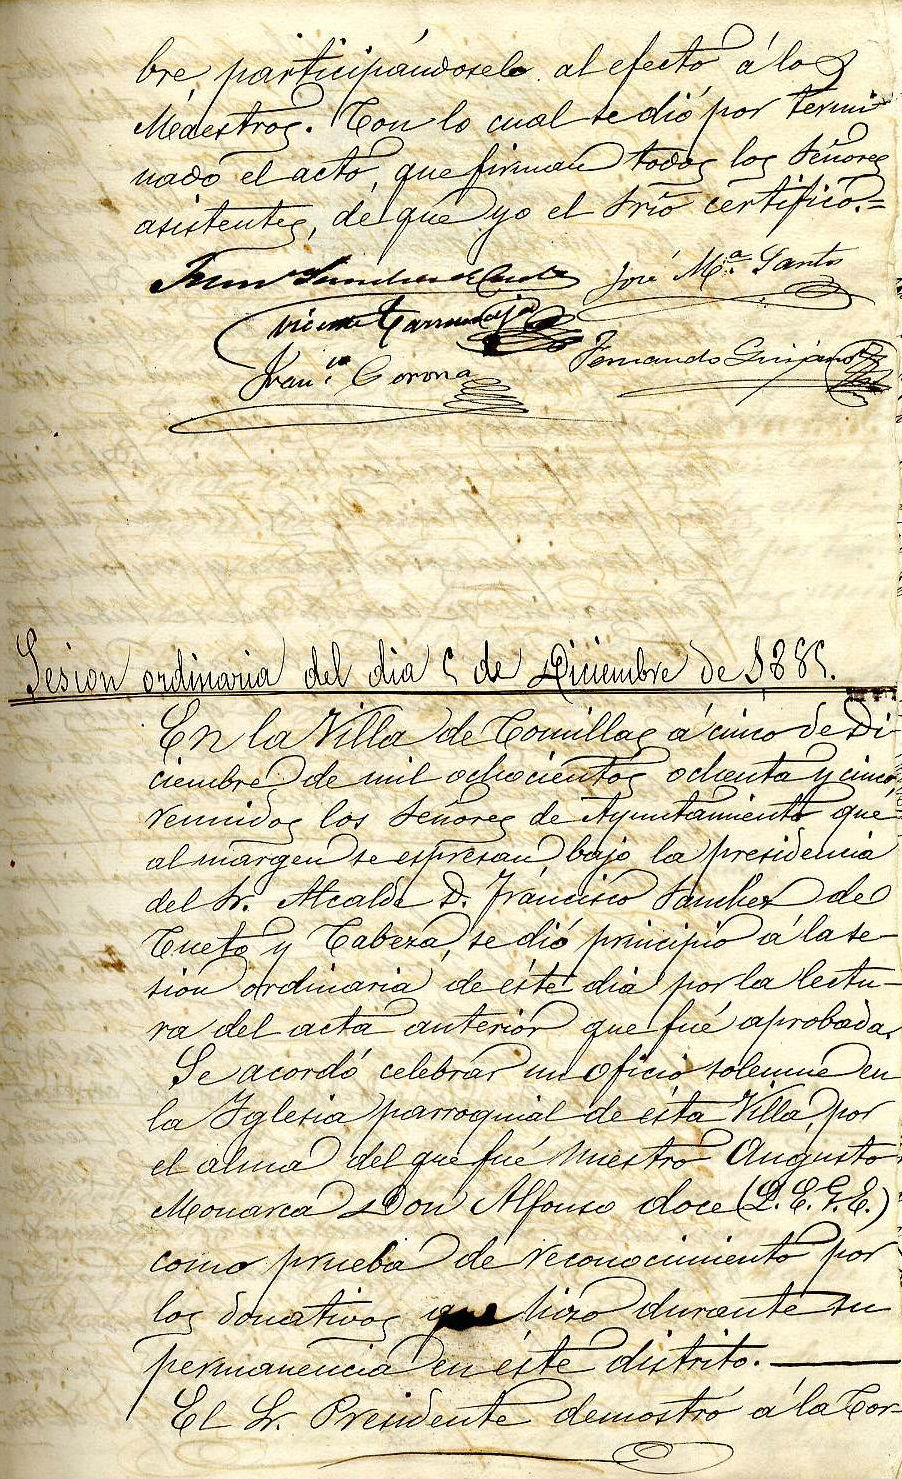 bre, participándoselo al efecto á los
Maestros. Con lo cual se dió por termi
nado el acto, que firman todos los Señores
asistentes, de que yo el Srio certifico.=
José Mª. Santos
Vicente
Fernando Quijano
Franco. Corona
Sesion ordinaria del dia 5 de Diciembre de 1885.
En la Villa de Comillas á cinco de Di-
ciembre de mil ochocientos ochenta y cinco,
reunidos los Señores de Ayuntamiento que
al margen se espresan bajo la presidencia
del Sr. Alcalde D. Francisco Sanchez de
Cueto y Cabeza, se dió principio á la se-
sion ordinaria de éste dia por la lectu-
ra del acta anterior que fué aprobada.
Se acordó celebrar un oficio solemne en
la Iglesia parroquial de ésta Villa, por
el alma del que fué Nuestro Augusto
Monarca Don Alfonso doce (Q.E.G.E.)
como prueba de reconocimiento por
los donativos que hizo durante su
permanencia en éste distrito.
El Sr. Presidente demostró á la Cor-